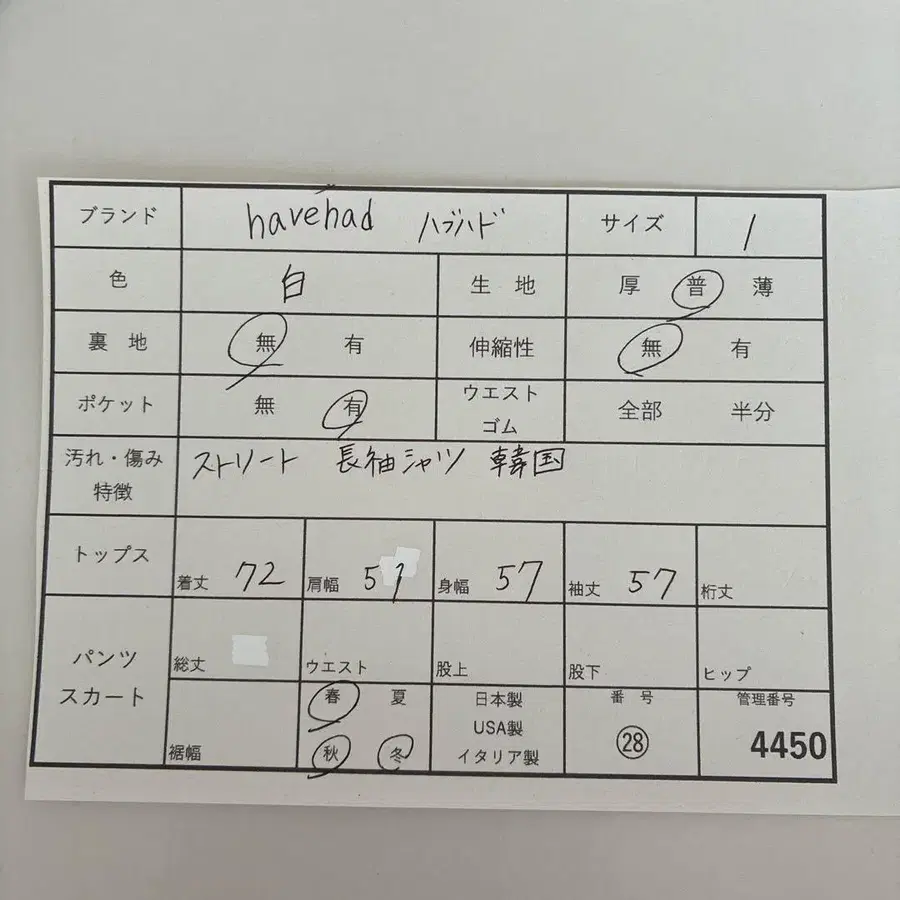 ブランド havehad ハブハド サイズ 1
色 白 生地 厚 普 薄
裏地 無 有 伸縮性 無 有
ポケット 無 有 ウエスト
ゴム 全部 半分
汚れ・傷み
特徴 ストリート 長袖シャツ 韓国
トップス 着丈 72 肩幅 51 身幅 57 袖丈 57 裄丈
パンツ
スカート
総丈 ウエスト 股上 股下 ヒップ
裾幅 春 夏
秋 冬
日本製
USA製
イタリア製
番号
28
管理番号
4450